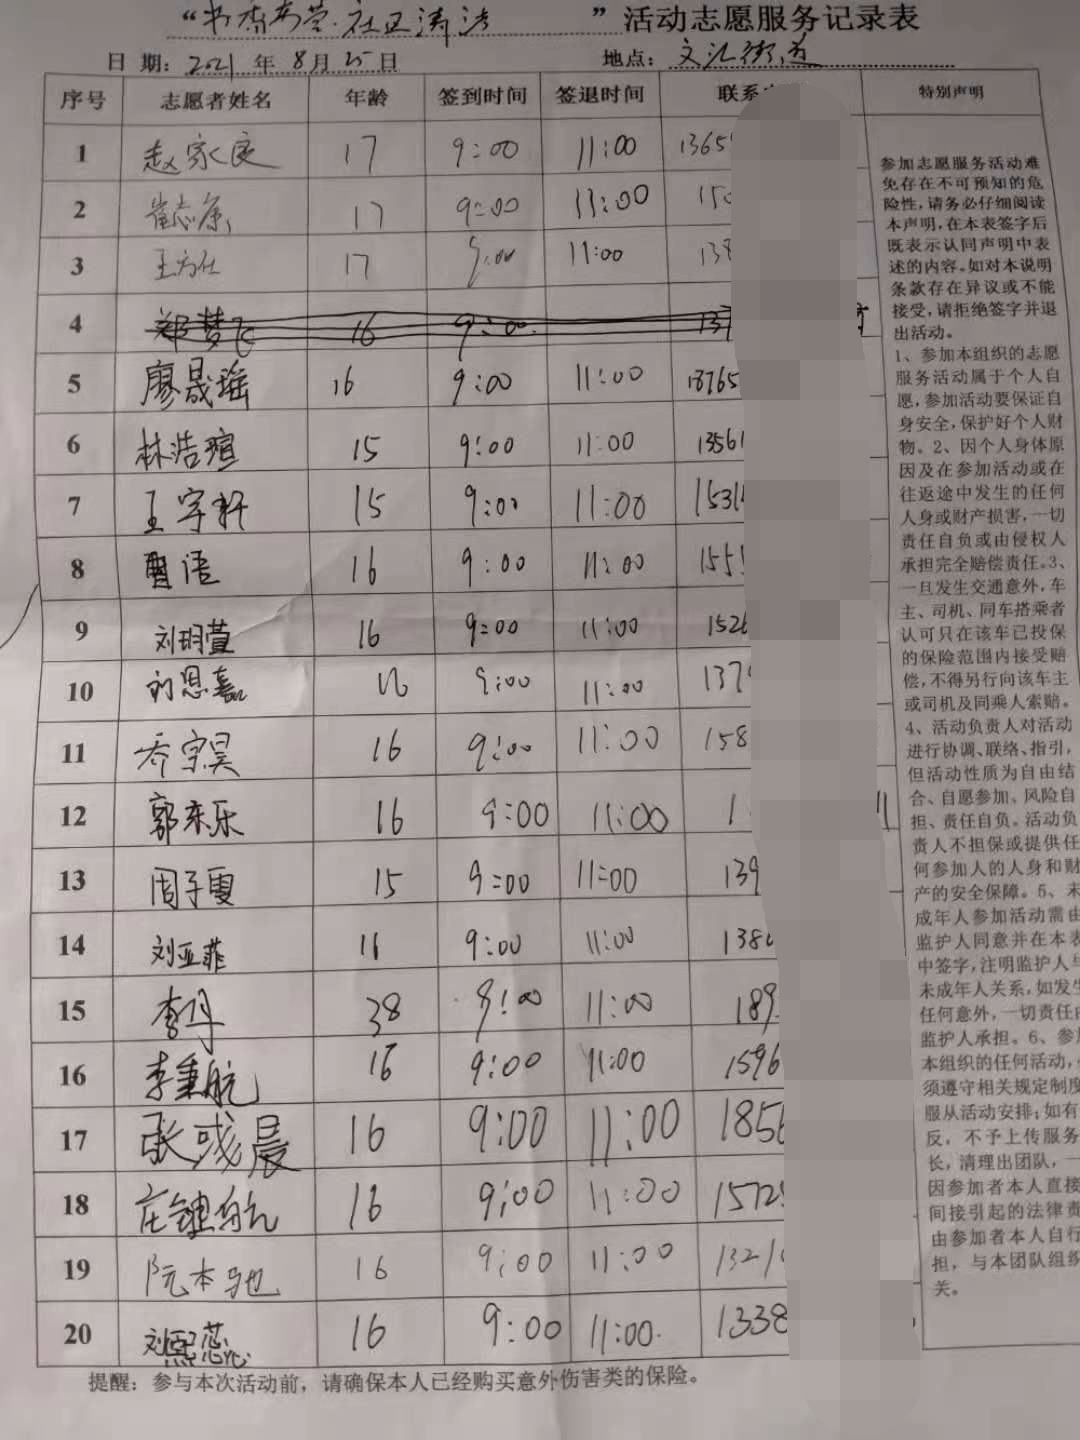 ”活动志愿服务记录表
日 期：2021 年 8 月 25 日 地点：文汇街道
序号 志愿者姓名 年龄 签到时间 签退时间 联系 特别声明
1 赵家良 17 9:00 11:00 1365
2 崔志康 17 9:00 11:00 150
3 王方仕 17 9:00 11:00 138
4 郑梦飞 16 9:00 137
5 廖晟瑶 16 9:00 11:00 18765
6 林浩瑄 15 9:00 11:00 13561
7 王宇轩 15 9:00 11:00 1531
8 曹语 16 9:00 11:00 155
9 刘玥萱 16 9:00 11:00 1526
10 刘恩嘉 16 9:00 11:00 137
11 乔宗昊 16 9:00 11:00 158
12 郭东乐 16 9:00 11:00 1
13 周子雯 15 9:00 11:00 139
14 刘亚菲 16 9:00 11:00 138
15 李丹 38 9:00 11:00 189
16 李秉航 16 9:00 11:00 1596
17 张彧晨 16 9:00 11:00 1856
18 庄键航 16 9:00 11:00 1572
19 阮本驰 16 9:00 11:00 1321
20 刘熙蕊 16 9:00 11:00 1338
参加志愿服务活动难
免存在不可预知的危
险性，请务必仔细阅读
本声明，在本表签字后
既表示认同声明中表
述的内容。如对本说明
条款存在异议或不能
接受，请拒绝签字并退
出活动。
1、参加本组织的志愿
服务活动属于个人自
愿，参加活动要保证自
身安全，保护好个人财
物。2、因个人身体原
因及在参加活动或在
往返途中发生的任何
人身或财产损害，一切
责任自负或由侵权人
承担完全赔偿责任。3、
一旦发生交通意外，车
主、司机、同车搭乘者
认可只在该车已投保
的保险范围内接受赔
偿，不得另行向该车主
或司机及同乘人索赔。
4、活动负责人对活动
进行协调、联络、指引，
但活动性质为自由结
合、自愿参加、风险自
担、责任自负。活动负
责人不担保或提供任
何参加人的人身和财
产的安全保障。5、未
成年人参加活动需由
监护人同意并在本表
中签字，注明监护人与
未成年人关系，如发生
任何意外，一切责任由
监护人承担。6、参加
本组织的任何活动，
须遵守相关规定制度
服从活动安排；如有
反，不予上传服务
长，清理出团队，一
因参加者本人直接
间接引起的法律责
由参加者本人自行
担，与本团队组织
关。
提醒：参与本次活动前，请确保本人已经购买意外伤害类的保险。